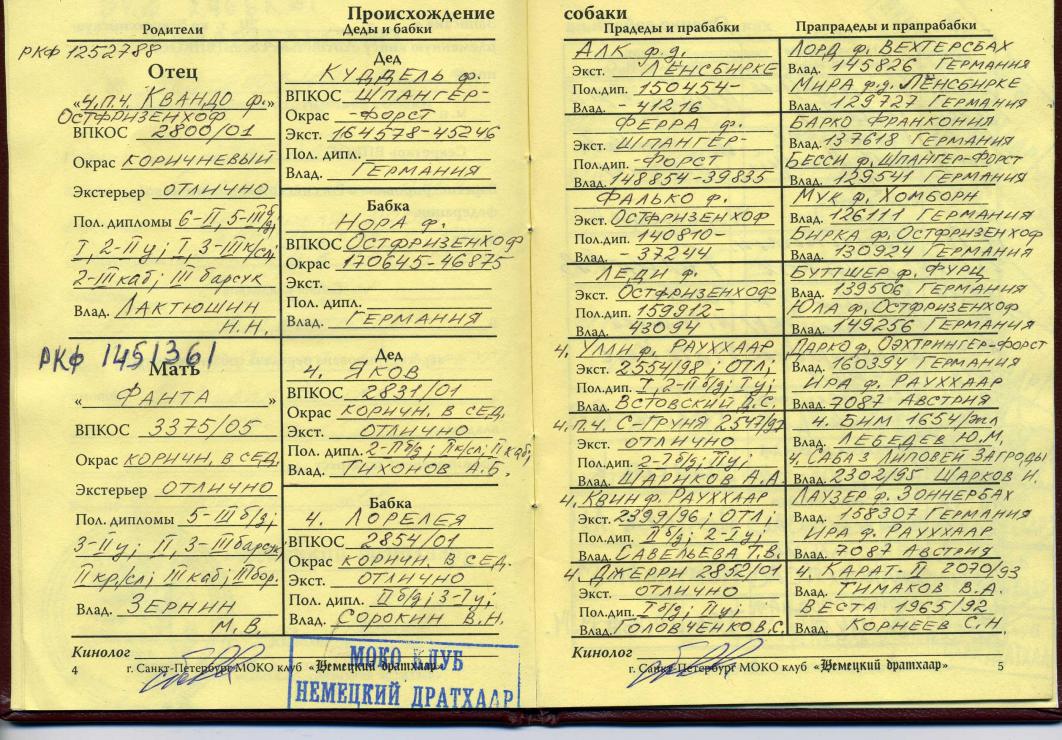 Происхождение
Родители
Деды и бабки
РКФ 1252788
Отец
«Ч.П.Ч. КВАНДО ф.»
ОСТФРИЗЕНХОФ
ВПКОС 2800/01
Окрас КОРИЧНЕВЫЙ
Экстерьер ОТЛИЧНО
Пол. дипломы 6-II, 5-III б/д,
I, 2-II у; I, 3-III к/сл;
2-III каб; III барсук
Влад. ЛАКТЮШИН
Н.Н.
РКФ 1451361
Мать
« ФАНТА »
ВПКОС 3375/05
Окрас КОРИЧН. В СЕД.
Экстерьер ОТЛИЧНО
Пол. дипломы 5-III б/д;
3-II у; II, 3-III барсук,
II кр/сл; III каб; III бор.
Влад. ЗЕРНИН
М.В.
Дед
КУДДЕЛЬ ф.
ВПКОС ШПАНГЕР-
Окрас -ФОРСТ
Экст. 164578-45246
Пол. дипл.
Влад. ГЕРМАНИЯ
Бабка
НОРА ф.
ВПКОС ОСТФРИЗЕНХОФ
Окрас 170645-46875
Экст.
Пол. дипл.
Влад. ГЕРМАНИЯ
Дед
Ч. ЯКОВ
ВПКОС 2831/01
Окрас КОРИЧН. В СЕД.
Экст. ОТЛИЧНО
Пол. дипл. 2-II б/д; II к/сл; II каб;
Влад. ТИХОНОВ А.Б.
Бабка
Ч. ЛОРЕЛЕЯ
ВПКОС 2854/01
Окрас КОРИЧН. В СЕД.
Экст. ОТЛИЧНО
Пол. дипл. II б/д; 3-I у;
Влад. СОРОКИН В.Н.
Кинолог
4
г. Санкт-Петербург МОКО клуб «Немецкий дратхаар»
МОКО КЛУБ
НЕМЕЦКИЙ ДРАТХААР
собаки
Прадеды и прабабки
Прапрадеды и прапрабабки
АЛК ф.д.
Экст. ЛЁНСБИРКЕ
Пол.дип. 150454-
Влад. -41216
ФЕРРА ф.
Экст. ШПАНГЕР-
Пол.дип. -ФОРСТ
Влад. 148854-39835
ФАЛЬКО ф.
Экст. ОСТФРИЗЕНХОФ
Пол.дип. 140810-
Влад. -37244
ЛЕДИ ф.
Экст. ОСТФРИЗЕНХОФ
Пол.дип. 159912-
Влад. 43094
Ч. УЛЛИ ф. РАУХХААР
Экст. 2554/98; ОТЛ;
Пол.дип. I, 2-II б/д; I у;
Влад. ВСТОВСКИЙ Д.С.
Ч.П.Ч. С-ГРУНЯ 2547/97
Экст. ОТЛИЧНО
Пол.дип. 2-I б/д; II у;
Влад. ШАРИКОВ А.А.
Ч. КВИН ф. РАУХХААР
Экст. 2399/96; ОТЛ;
Пол.дип. II б/д; 2-I у;
Влад. САВЕЛЬЕВА Т.В.
Ч. ДЖЕРРИ 2852/01
Экст. ОТЛИЧНО
Пол.дип. I б/д; II у;
Влад. ГОЛОВЧЕНКО В.С.
ЛОРД ф. ВЕХТЕРСБАХ
Влад. 145826 ГЕРМАНИЯ
МИРА ф.д. ЛЁНСБИРКЕ
Влад. 129727 ГЕРМАНИЯ
БАРКО ФРАНКОНИЯ
Влад. 137618 ГЕРМАНИЯ
БЕССИ ф. ШПАНГЕР-ФОРСТ
Влад. 129541 ГЕРМАНИЯ
МУК ф. ХОМБОРН
Влад. 126111 ГЕРМАНИЯ
БИРКА ф. ОСТФРИЗЕНХОФ
Влад. 130924 ГЕРМАНИЯ
БУТТШЕР ф. ФУРЦ
Влад. 139506 ГЕРМАНИЯ
ЮЛА ф. ОСТФРИЗЕНХОФ
Влад. 149256 ГЕРМАНИЯ
ДАРКО ф. ОЭХТРИНГЕР-ФОРСТ
Влад. 160394 ГЕРМАНИЯ
ИРА ф. РАУХХААР
Влад. 7087 АВСТРИЯ
Ч. БИМ 1654/
Влад. ЛЕБЕДЕВ Ю.М.
Ч. САБА З ЛИПОВЕЙ ЗАГРОДЫ
Влад. 2302/95 ШАРКОВ И.
ЛАУЗЕР ф. ЗОННЕРБАХ
Влад. 158307 ГЕРМАНИЯ
ИРА ф. РАУХХААР
Влад. 7087 АВСТРИЯ
Ч. КАРАТ-II 2070/93
Влад. ТИМАКОВ В.А.
ВЕСТА 1965/92
Влад. КОРНЕЕВ С.Н.
Кинолог
г. Санкт-Петербург МОКО клуб «Немецкий дратхаар»
5